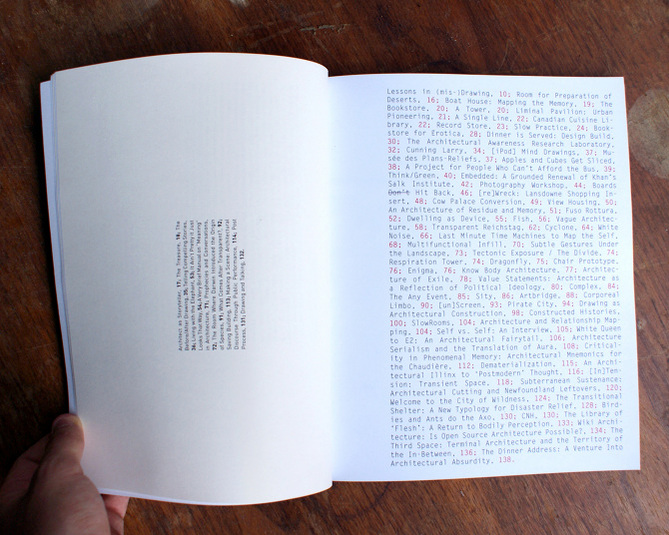 Architect as Storyteller, 17; The Treasure, 18; The
Before/After Drawing, 35; Telling Compelling Stories,
36; Living with the Elephant, 53; It Ain't Pretty it Just
Looks That Way, 54; A Very Brief Manual on 'Meaning'
in Architecture, 71; Prophecies and Conversations,
72; The Room Where Darwin Introduced the Origin
of Species, 91; What Comes After Transparent?, 92;
Saving Building, 113; Making a Scene: Architectural
Discourse Through Public Performance, 114; Pilot
Process, 131; Drawing and Talking, 132.
Lessons in (mis-)Drawing, 10; Room for Preparation of
Deserts, 16; Boat House: Mapping the Memory, 19; The
Bookstore, 20; A Tower, 20; Liminal Pavilion: Urban
Pioneering, 21; A Single Line, 22; Canadian Cuisine Li-
brary, 22; Record Store, 23; Slow Practice, 24; Book-
store for Erotica, 28; Dinner is Served: Design Build,
30; The Architectural Awareness Research Laboratory,
32; Cunning Larry, 34; [iPod] Mind Drawings, 37; Mu-
sée des Plans-Reliefs, 37; Apples and Cubes Get Sliced,
38; A Project for People Who Can't Afford the Bus, 39;
Think/Green, 40; Embedded: A Grounded Renewal of Khan's
Salk Institute, 42; Photography Workshop, 44; Boards
Don't Hit Back, 46; [re]Wreck: Lansdowne Shopping In-
sert, 48; Cow Palace Conversion, 49; View Housing, 50;
An Architecture of Residue and Memory, 51; Fuso Rottura,
52; Dwelling as Device, 55; Fish, 56; Vague Architec-
ture, 58; Transparent Reichstag, 62; Cyclone, 64; White
Noise, 66; Last Minute Time Machines to Map the Self,
68; Multifunctional Infill, 70; Subtle Gestures Under
the Landscape, 73; Tectonic Exposure / The Divide, 74;
Respiration Tower, 74; Dragonfly, 75; Chair Prototype,
76; Enigma, 76; Know Body Architecture, 77; Architec-
ture of Exile, 78; Value Statements: Architecture as
a Reflection of Political Ideology, 80; Complex, 84;
The Any Event, 85; Slty, 86; Artbridge, 88; Corporeal
Limbo, 90; [un]Screen, 93; Pirate City, 94; Drawing as
Architectural Construction, 98; Constructed Histories,
100; SlowRooms, 104; Architecture and Relationship Map-
ping, 104; Self vs. Self: An Interview, 105; White Queen
to E2: An Architectural Fairytail, 106; Architecture
Serialism and the Translation of Aura, 108; Critical-
ity in Phenomenal Memory: Architectural Mnemonics for
the Chaudière, 112; Dematerialization, 115; An Archi-
tectural Illinx to 'Postmodern' Thought, 116; [In]Ten-
sion: Transient Space, 118; Subterranean Sustenance:
Architectural Cutting and Newfoundland Leftovers, 120;
Welcome to the City of Wildness, 124; The Transitional
Shelter: A New Typology for Disaster Relief, 128; Bird-
ies and Ants do the Axo, 130; CNH, 130; The Library of
'Flesh': A Return to Bodily Perception, 133; Wiki Archi-
tecture: Is Open Source Architecture Possible?, 134; The
Third Space: Terminal Architecture and the Territory of
the In-Between, 136; The Dinner Address: A Venture Into
Architectural Absurdity, 138.